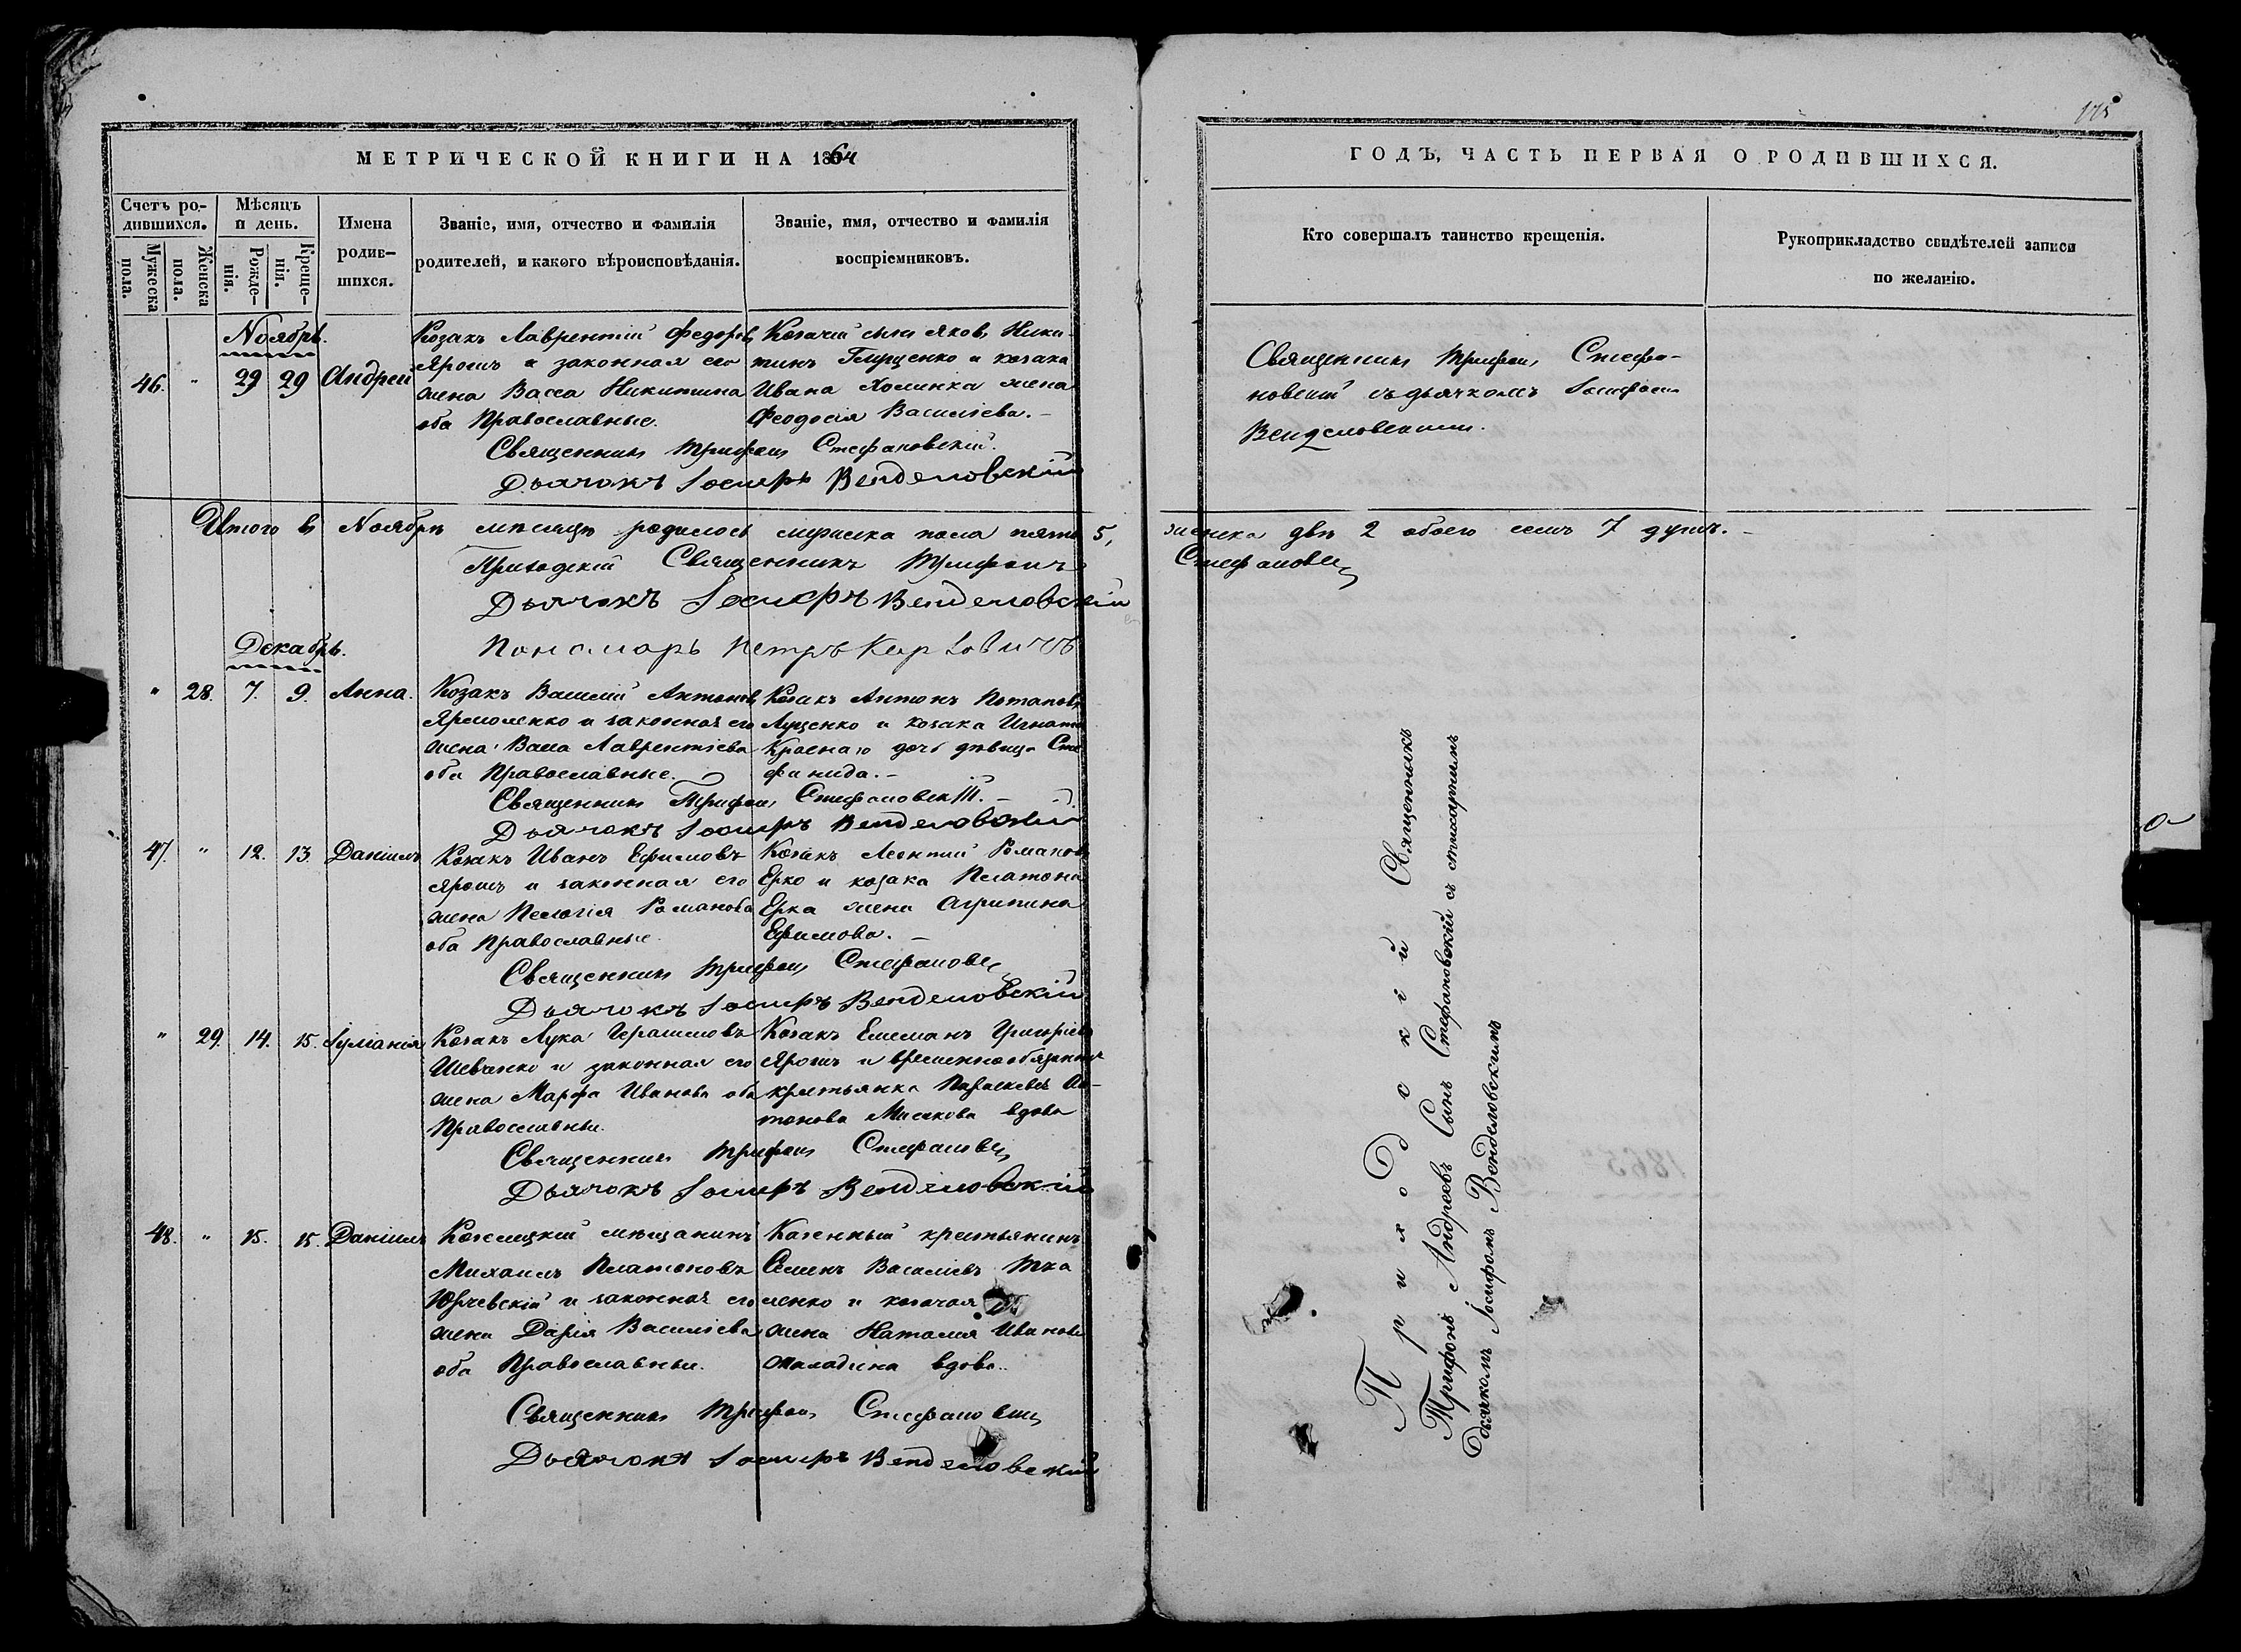 175
МЕТРИЧЕСКОЙ КНИГИ НА 1864
ГОДЪ, ЧАСТЬ ПЕРВАЯ О РОДИВШИХСЯ.
Счетъ ро-
дившихся.
Мужеска
пола.
Женска
пола.
Мѣсяцъ
и день.
Рожде-
нія.
Креще-
нія.
Имена
родив-
шихся.
Званіе, имя, отчество и фамилія
родителей, и какого вѣроисповѣданія.
Званіе, имя, отчество и фамилія
воспріемниковъ.
Кто совершалъ таинство крещенія.
Рукоприкладство свидѣтелей записи
по желанію.
Ноябрь.
46. " 29 29 Андрей
Козакъ Лаврентій Федоровъ
Ярошъ и законная его
жена Васса Никитина
оба Православные.
Козачій сынъ Яковъ Ники-
тинъ Глущенко и козака
Ивана Хоминка жена
Феодосія Василіева.-
Священникъ Трифонъ Стефановскій.
Дьячокъ Іосифъ Венделовскій
Священникъ Трифонъ Стефа-
новскій съ дьячкомъ Іосифомъ
Венделовскимъ.
Итого въ Ноябрѣ мѣсяцѣ родилось мужеска пола пять 5,
женска двѣ 2 обоего семъ 7 душъ.-
Приходскій Священникъ Трифонъ
Стефановскій
Дьячокъ Іосифъ Венделовскій
Пономарь Петръ Карповичъ
Декабрь.
" 28. 7. 9. Анна.
Козакъ Василій Антоновъ
Ярмоленко и законная его
жена Васса Лаврентіева
оба Православные.
Козакъ Антонъ Потаповъ
Луценко и козака Игната
Краснаго дочь дѣвица Сте
фанида.-
Священникъ Трифонъ Стефановскій.-
Дьячокъ Іосифъ Венделовскій
47. " 12. 13. Даніилъ
Козакъ Иванъ Ефимовъ
Ярошъ и законная его
жена Пелагія Романова
оба Православные.
Козакъ Леонтій Романовъ
Ерко и козака Платона
Ерка жена Агрипина
Ефимова.-
Священникъ Трифонъ Стефановскій
Дьячокъ Іосифъ Венделовскій
" 29. 14. 15. Іуліанія
Козакъ Лука Герасимовъ
Шевченко и законная его
жена Марфа Иванова оба
Православные.
Козакъ Емеманъ Григоріевъ
Ярошъ и временнообязанная
крестьянка Параскева Ан-
тонова вдова
Священникъ Трифонъ Стефановскій
Дьячокъ Іосифъ Венделовскій
48. " 15. 15. Даніилъ
Козелицкій мѣщанинъ
Михаилъ Платоновъ
Юрчевскій и законная его
жена Дарія Василіева
оба Православные.
Казенный крестьянинъ
Семенъ Василіевъ Тка
ленко и козачая
жена Наталія Иванова
вдова.
Священникъ Трифонъ Стефановскій
Дьячокъ Іосифъ Венделовскій
Приходскій Священникъ
Трифонъ Андреевъ Сынъ Стефановскій съ стихарнымъ
Дьячкомъ Іосифомъ Венделовскимъ